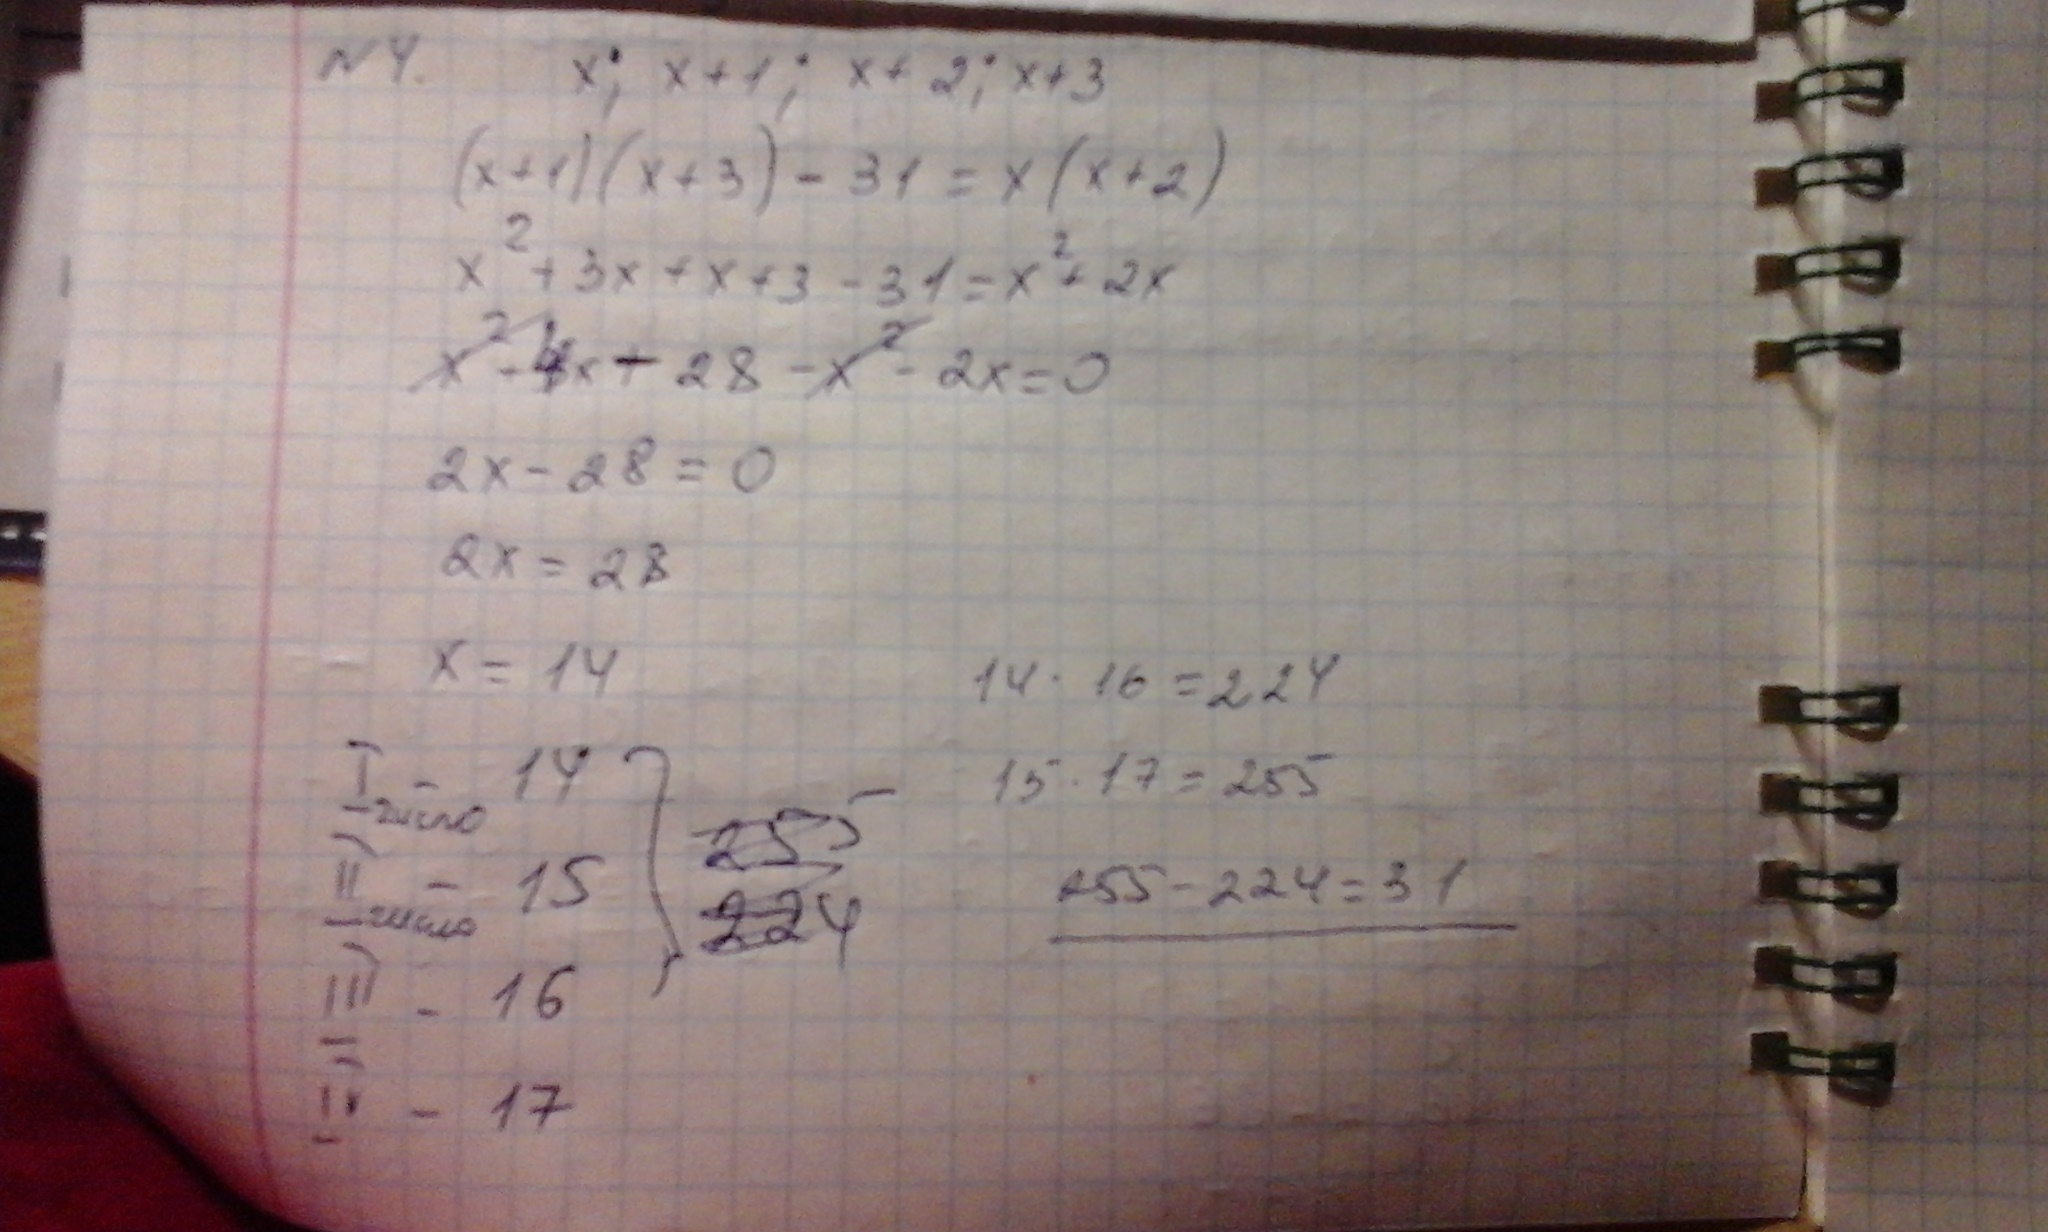 N4. x; x+1; x+2; x+3
(x+1)(x+3)-31=x(x+2)
x²+3x+x+3-31=x²+2x
x²-4x-28-x²-2x=0
2x-28=0
2x=28
x=14
14·16=224
I число - 14
15·17=255
255
II число - 15
224
255-224=31
III - 16
IV - 17